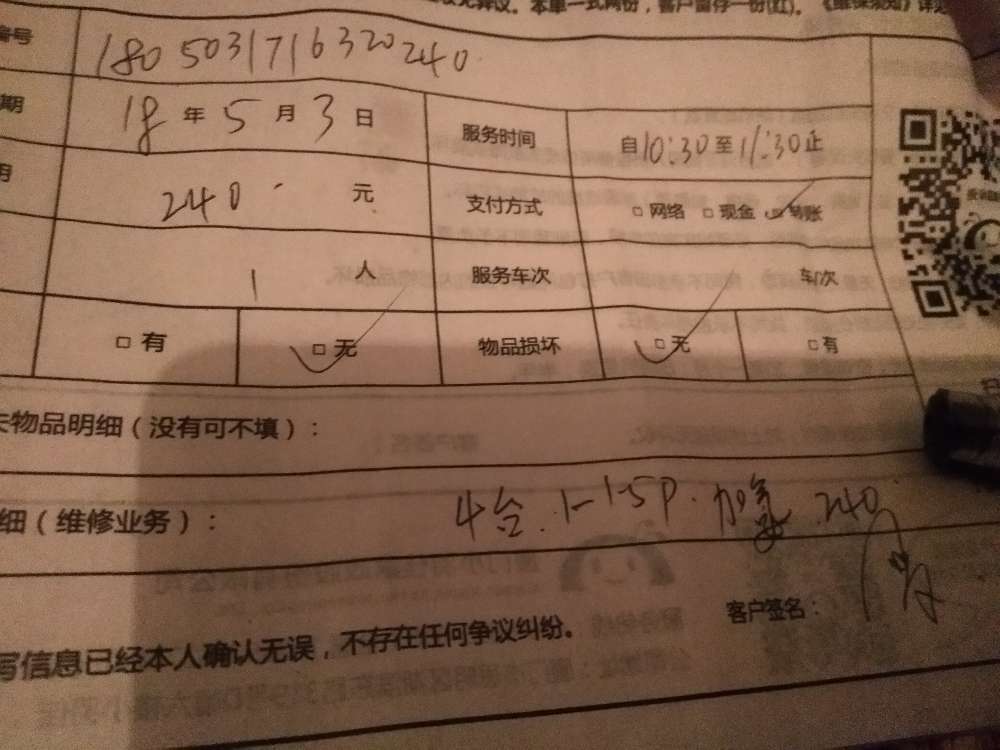 本单一式两份，客户留存一份(红)。《维保须知》详见
编号 1805031716320240
期 18年5月3日 服务时间 自10:30至11:30止
240 元 支付方式 □网络 □现金 □转账
1 人 服务车次 车/次
□有 □无 物品损坏 □无 □有
失物品明细（没有可不填）：
细（维修业务）： 4台 1-1.5P 加氟 240
客户签名：
写信息已经本人确认无误，不存在任何争议纠纷。